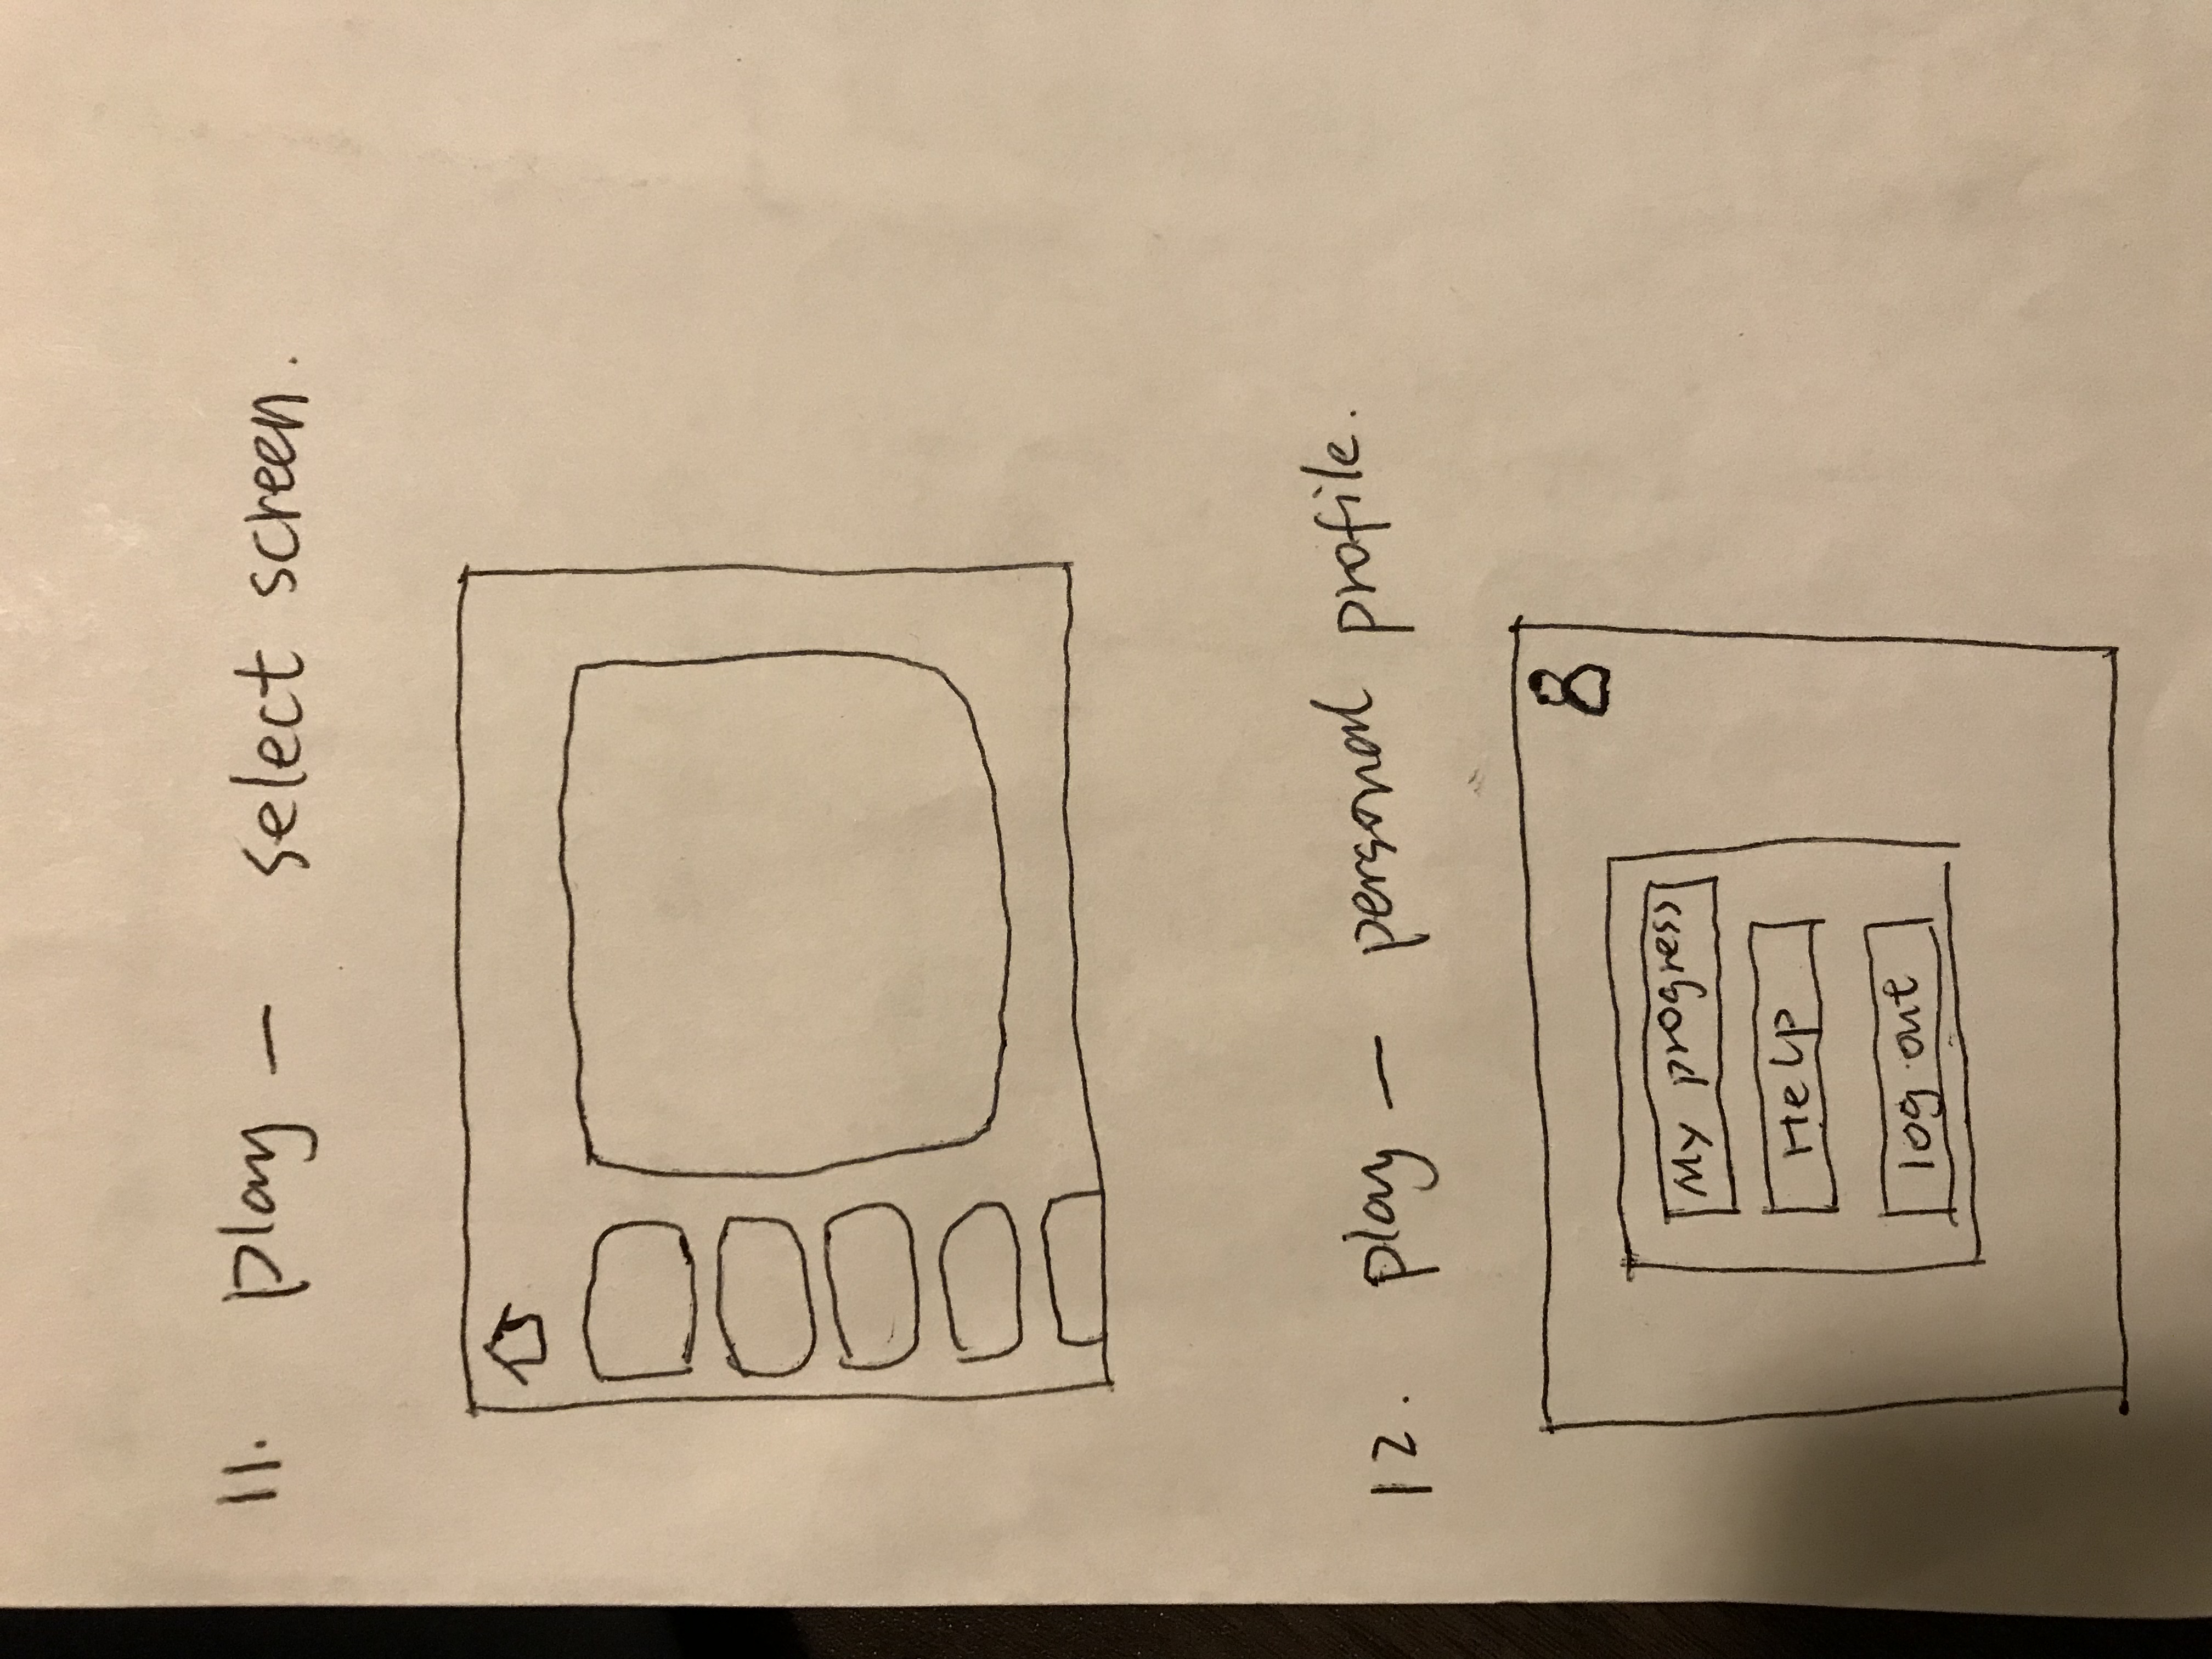 11. play — select screen.
12. play — personal profile.
My progress
Help
log out